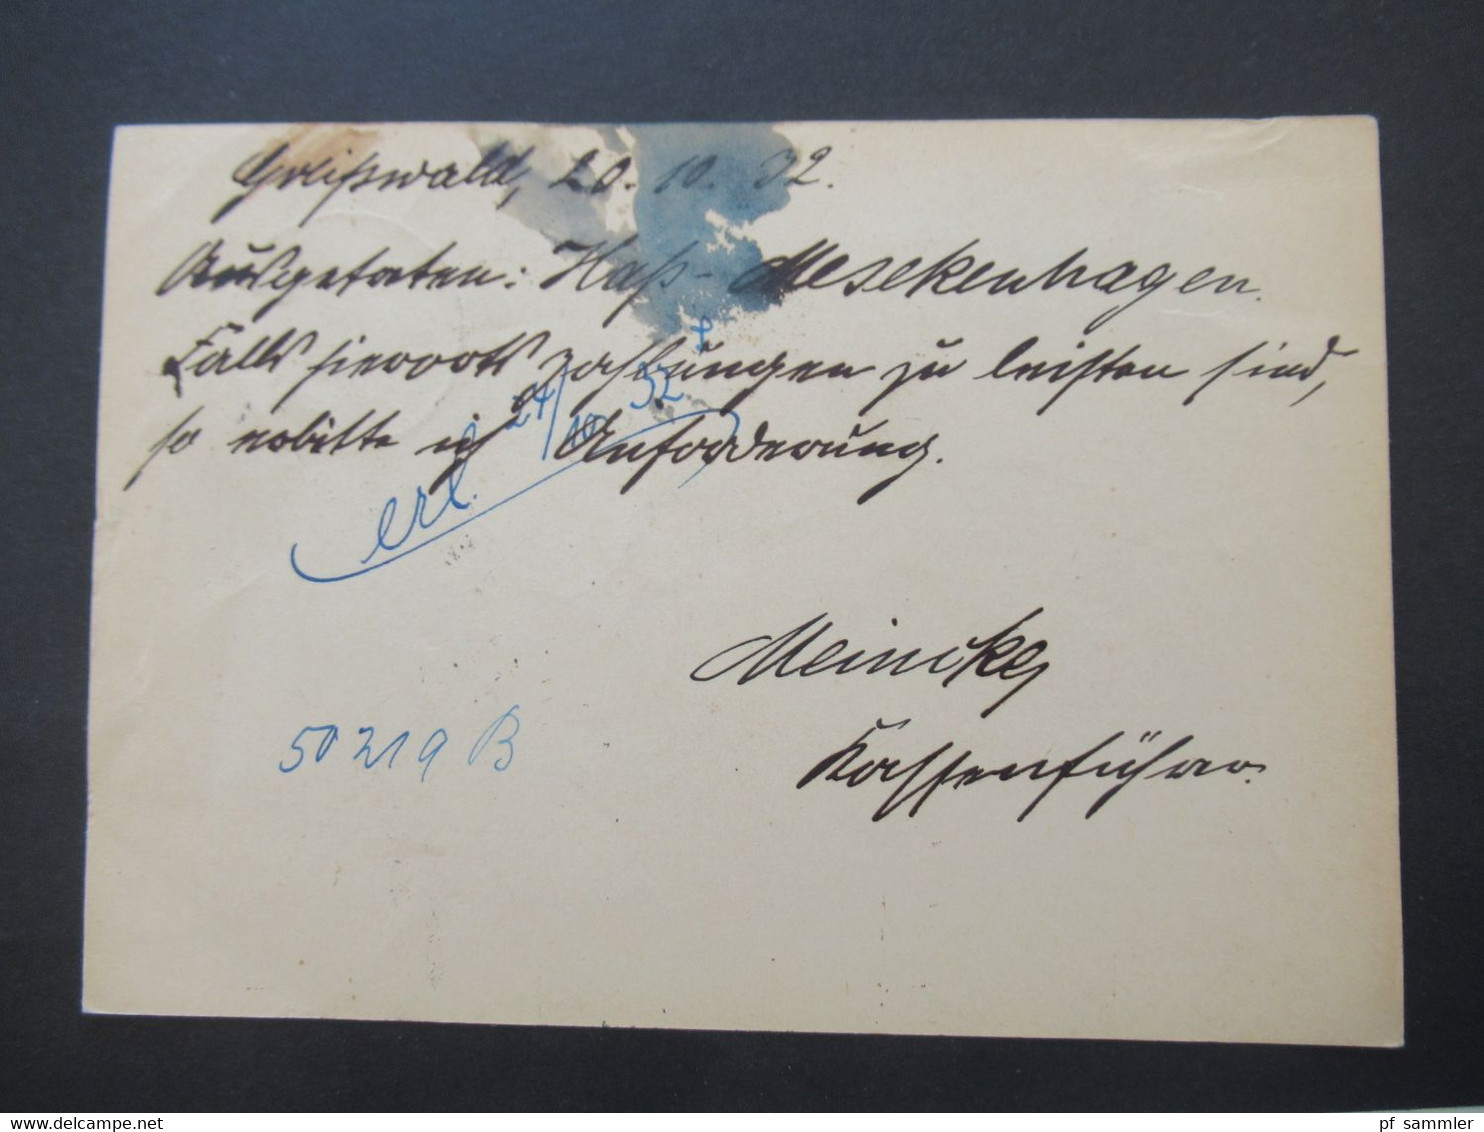 Greifswald, 20. 10. 32.
Ausgetreten: Haß - Mesekenhagen.
Falls hierorts Zahlungen zu leisten sind,
so erbitte ich Anforderung.
erl. 24/10 32
Meincke
Kassenführer.
50219 B
www.delcampe.net
pf_sammler